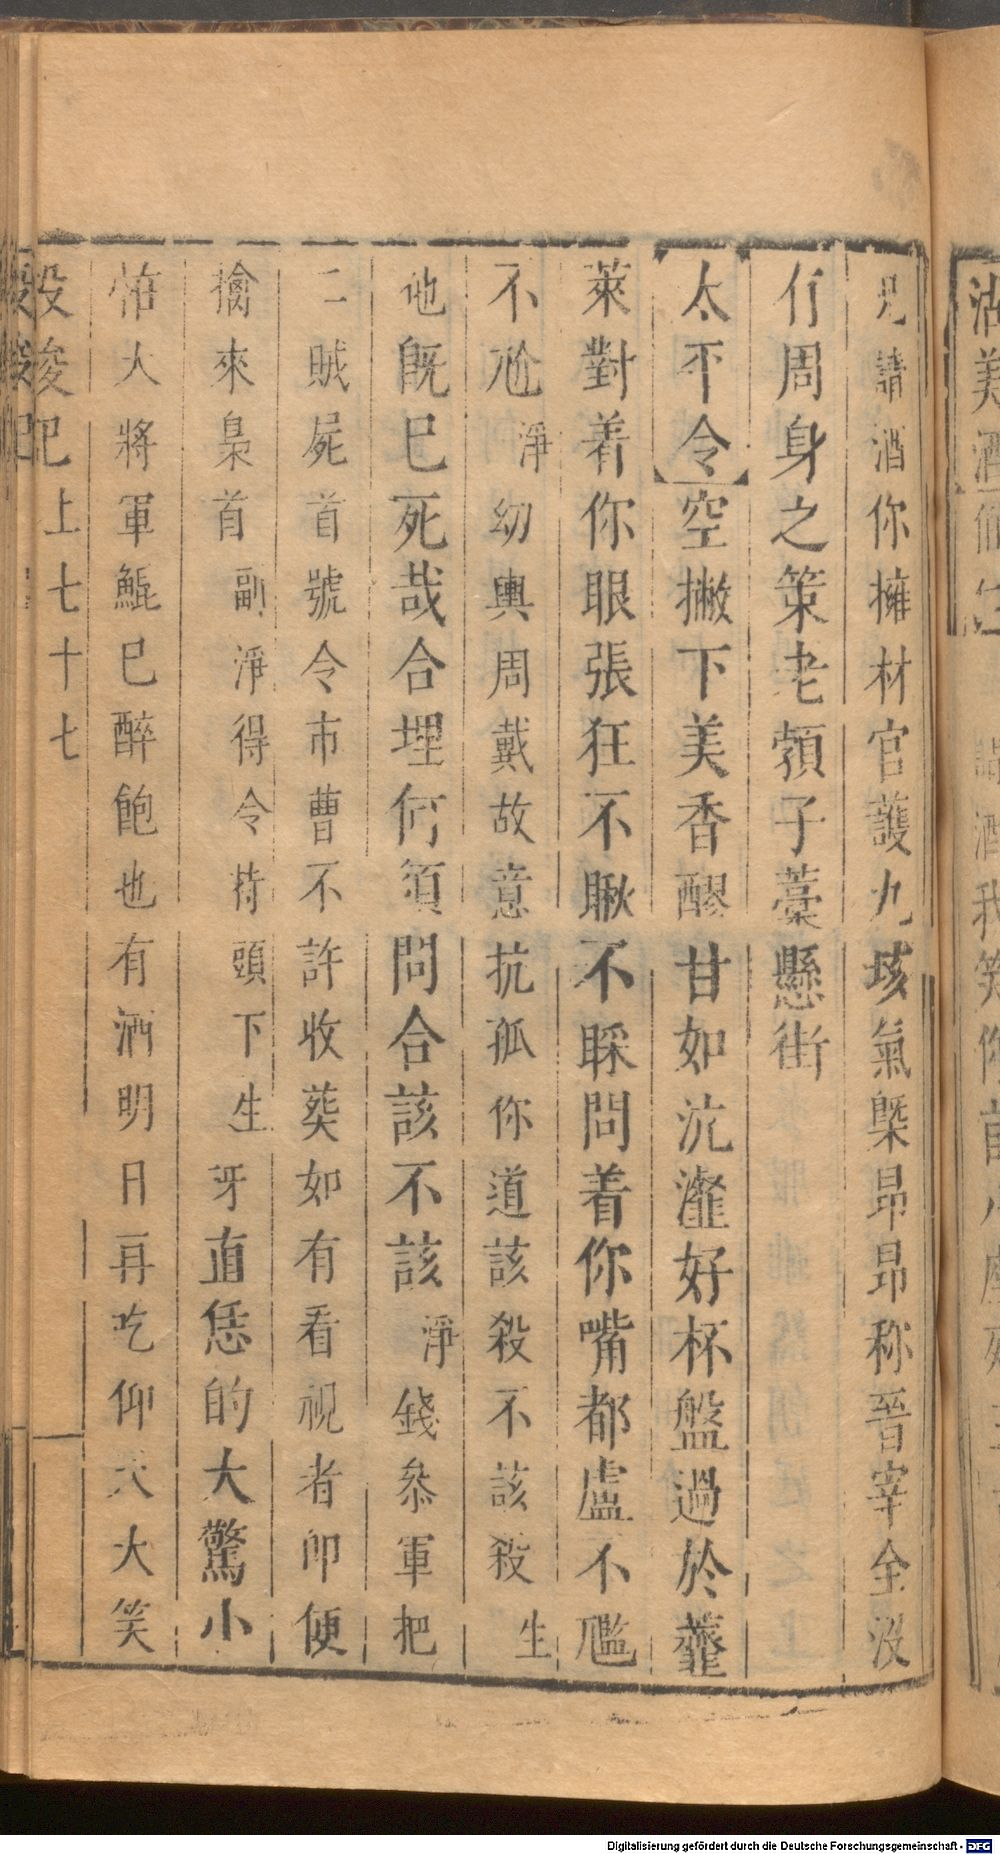 兄請酒你擁材官護九垓氣槩昂昂称晉宰全沒
有周身之策老顙子藁懸街
太平令空撇下美香醪甘如沆瀣好杯盤過於虀
萊對着你眼張狂不瞅不睬問着你嘴都盧不尷
不尬淨幼輿周戴故意抗孤你道該殺不該殺生
他旣已死哉合埋何須問合該不該淨錢參軍把
二賊屍首號令市曹不許收葬如有看視者卽便
擒來梟首副淨得令持頭下生牙直恁的大驚小
怖大將軍鯤已醉飽也有酒明日再吃仰天大笑
投梭記上七十七
沽美酒
請酒我笑你
Digitalisierung gefördert durch die Deutsche Forschungsgemeinschaft - DFG